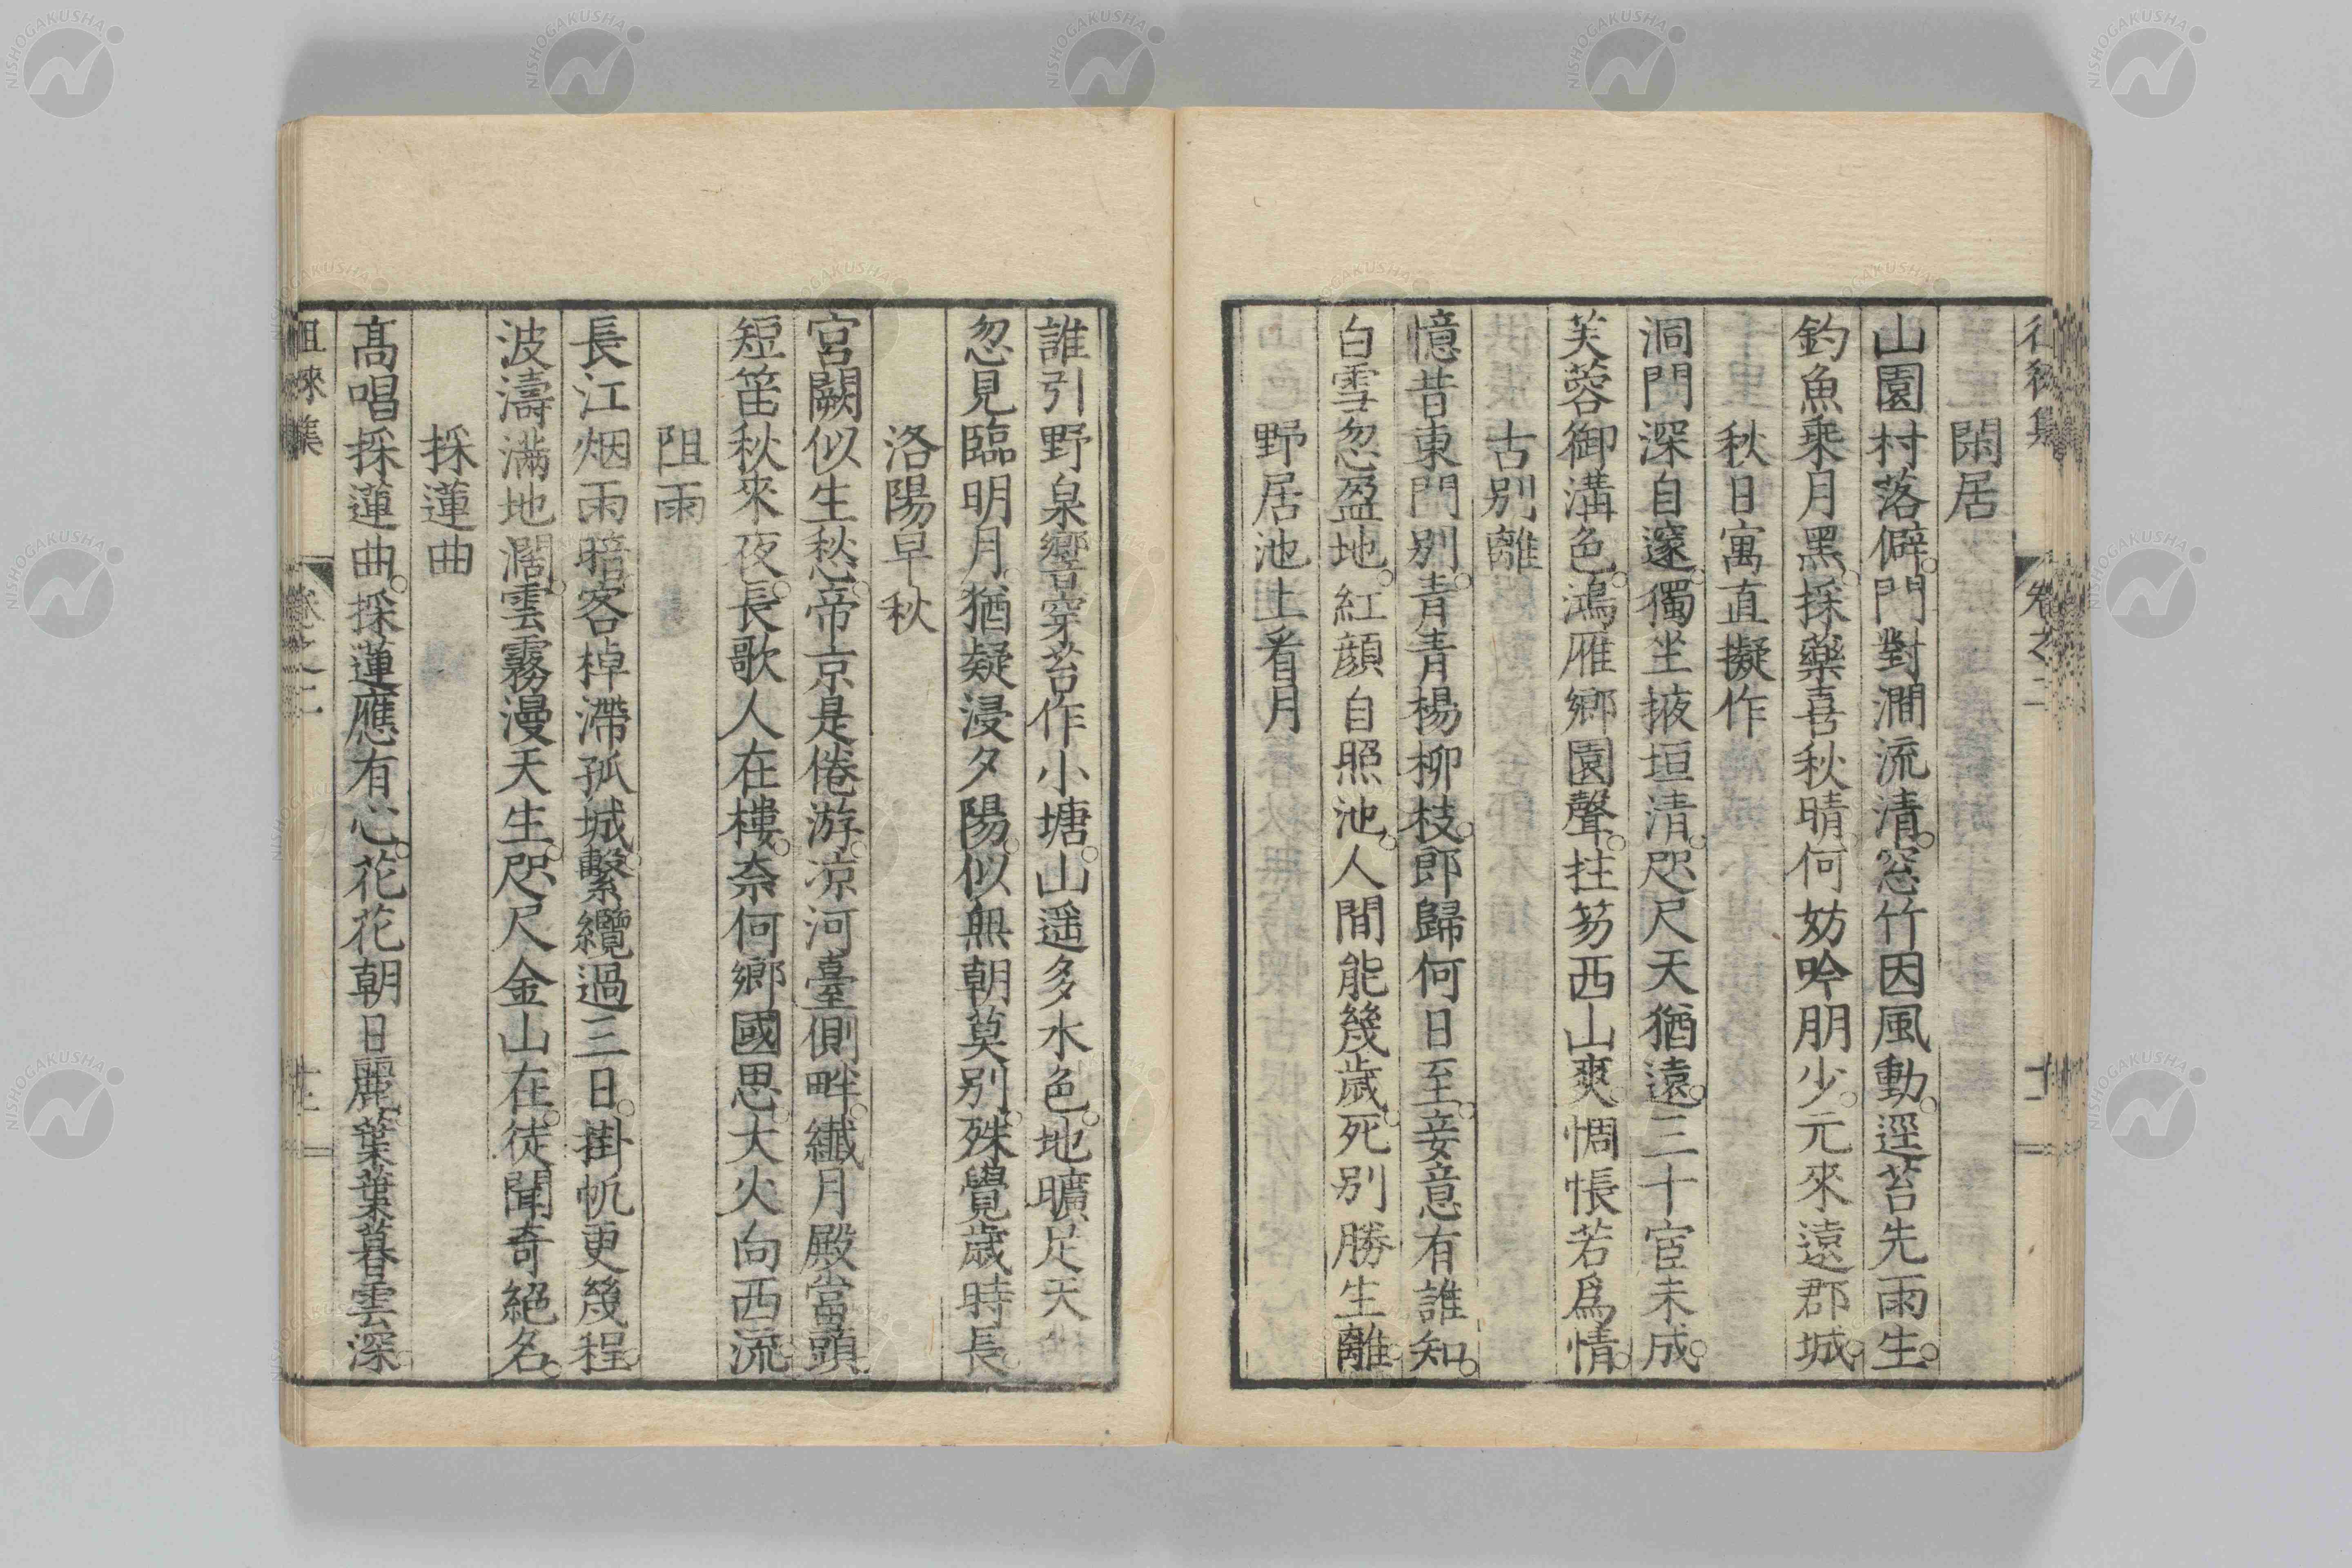 閑居
山園村落僻。門對澗流清。窓竹因風動。逕苔先雨生。
釣魚乘月黑。採藥喜秋晴。何妨吟朋少。元來遠郡城。
秋日寓直擬作
洞門深自邃。獨坐掖垣清。咫尺天猶遠。三十宦未成。
芙蓉御溝色。鴻雁鄉園聲。拄笏西山爽。惆悵若爲情。
古別離
憶昔東門別。青青楊柳枝。郎歸何日至。妾意有誰知。
白雪忽盈地。紅顔自照池。人間能幾歲。死別勝生離。
野居池上看月
誰引野泉響。穿苔作小塘。山遥多水色。地曠足天
忽見臨明月。猶疑浸夕陽。似無朝莫別。殊覺歲時長。
洛陽早秋
宮闕似生愁。帝京是倦游。凉河臺側畔。纎月殿當頭。
短笛秋來夜。長歌人在樓。奈何鄉國思。大火向西流。
阻雨
長江烟雨暗。客棹滯孤城。繫纜過三日。掛帆更幾程。
波濤滿地濶。雲霧漫天生。咫尺金山在。徒聞奇絕名。
採蓮曲
髙唱採蓮曲。採蓮應有心。花花朝日麗。葉葉暮雲深。
徂徠集 卷之二
NISHOGAKUSHA